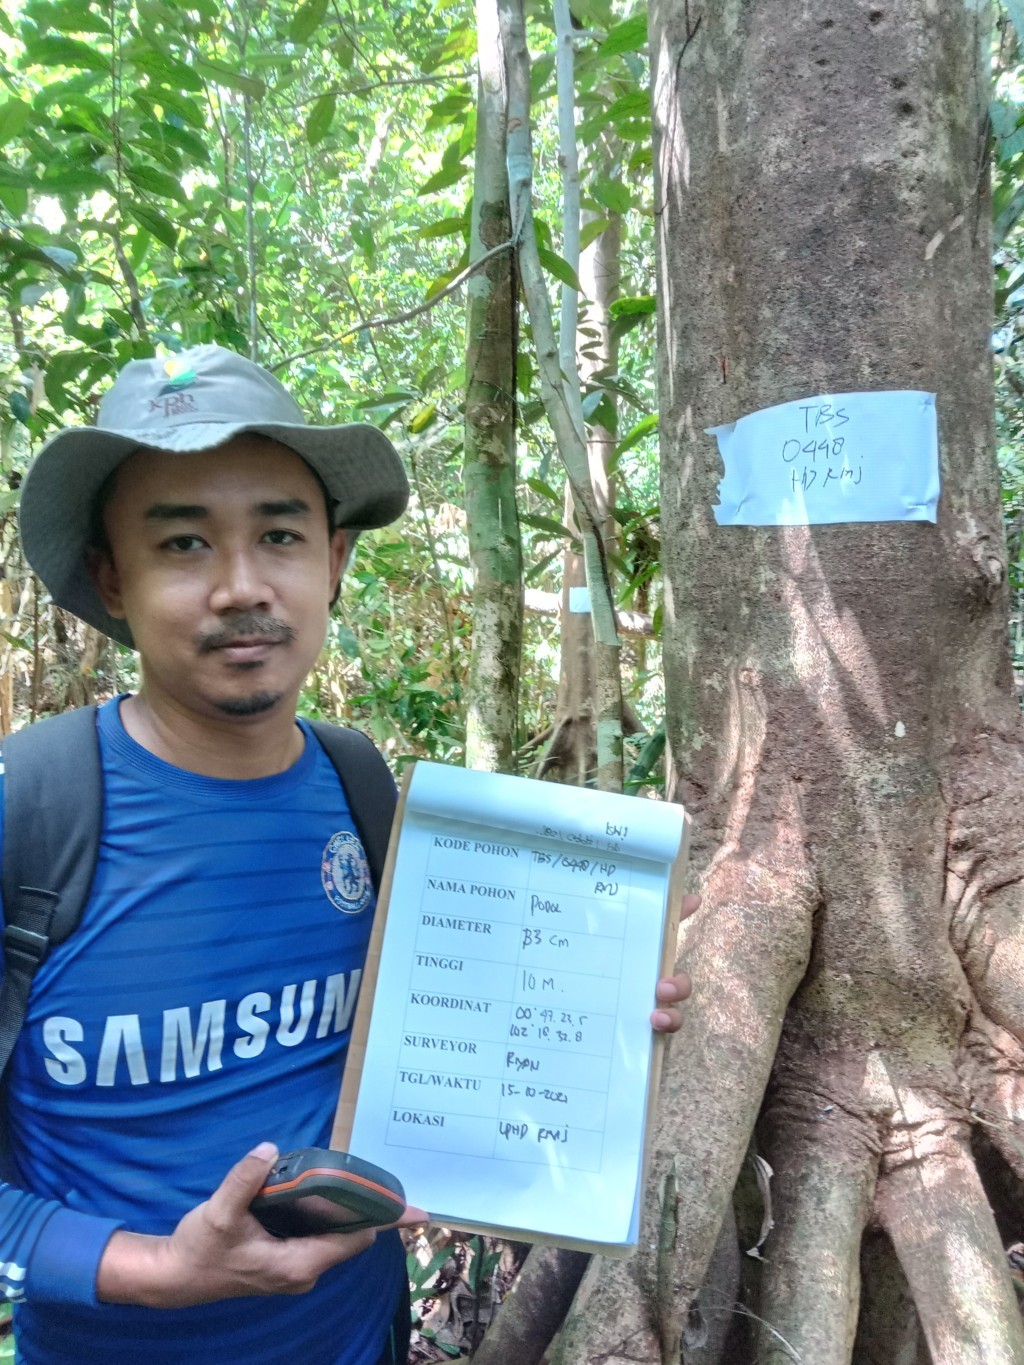 kph
TBS
0448
HD RMJ
CHELSEA
FOOTBALL CLUB
SAMSUN
KODE POHON TBS/0448/HD
RMJ
NAMA POHON
DIAMETER 33 cm
TINGGI 10 M.
KOORDINAT 00° 47. 23. 5
102° 18. 32. 8
SURVEYOR RIYAN
TGL/WAKTU 15-10-2021
LOKASI LPHD RMJ